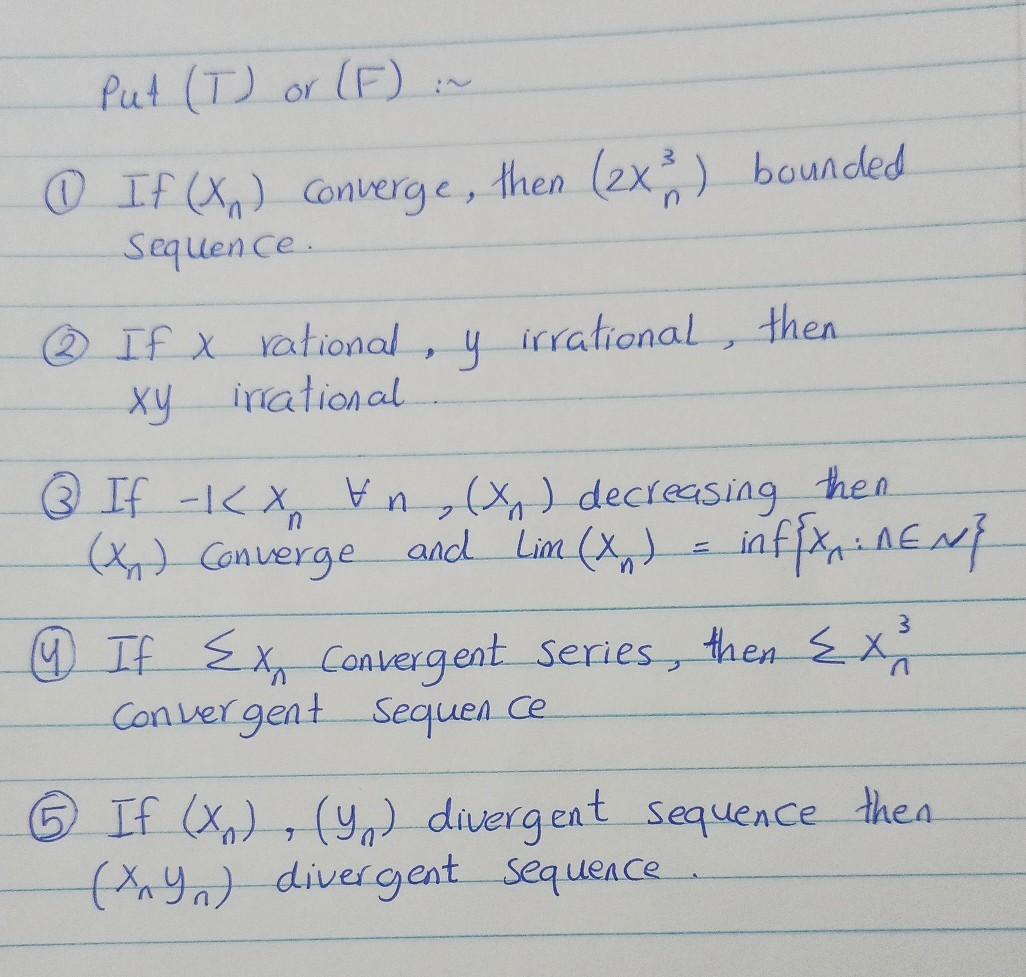 Put (T) or (F) :~
① If (xₙ) Converge, then (2xₙ³) bounded
Sequence.
② If x rational, y irrational, then
xy irrational.
③ If -1< xₙ ∀n, (xₙ) decreasing then
(xₙ) Converge and Lim (xₙ) = inf{xₙ : n∈N}
④ If Σxₙ Convergent series, then Σxₙ³
Convergent Sequence
⑤ If (xₙ), (yₙ) divergent sequence then
(xₙyₙ) divergent sequence.